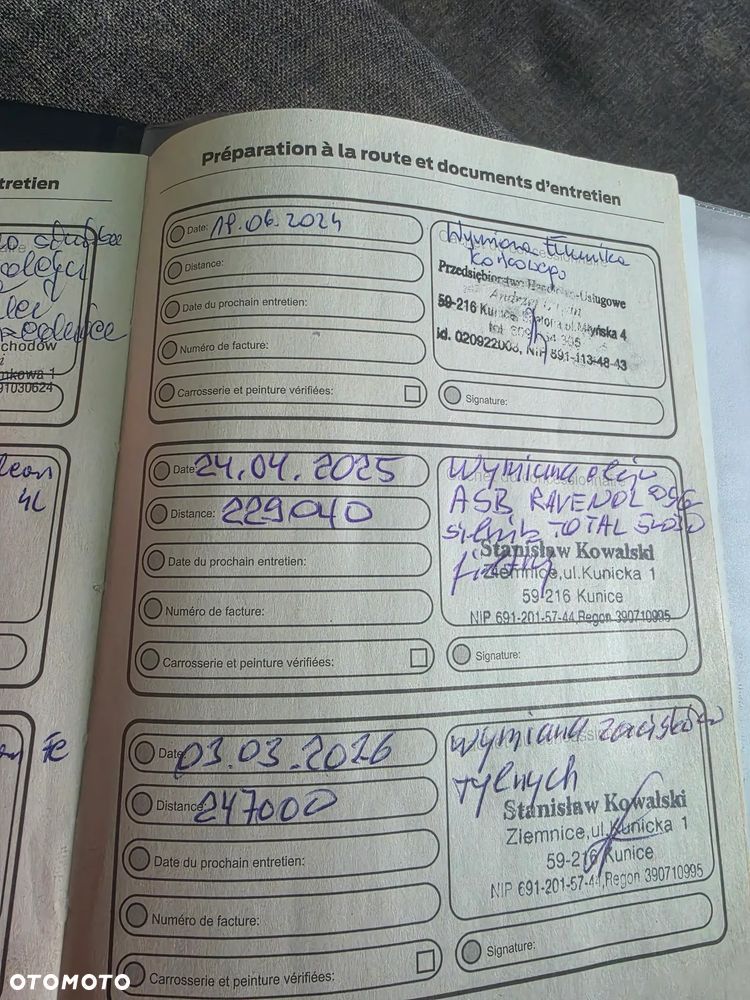 tretien
chodów
nkowa 1
91030624
4L
Préparation à la route et documents d'entretien
Date: 18.06.2024
Distance:
Date du prochain entretien:
Numéro de facture:
Carrosserie et peinture vérifiées:
Wymiana tłumika
końcowego
Przedsiębiorstwo Handlowo-Usługowe
59-216 Kunice ul. Młyńska 4
Id. 020922003, NIP 691-113-48-43
Signature:
Date 24.04.2025
Distance: 229040
Date du prochain entretien:
Numéro de facture:
Carrosserie et peinture vérifiées:
Wymiana oleju
ASB RAVENOL
silnik TOTAL 5W30
filtry
Stanisław Kowalski
Ziemnice,ul.Kunicka 1
59-216 Kunice
NIP 691-201-57-44,Regon 390710995
Signature:
Date 03.03.2026
Distance: 247000
Date du prochain entretien:
Numéro de facture:
Carrosserie et peinture vérifiées:
Wymiana zacisków
tylnych
Stanisław Kowalski
Ziemnice,ul.Kunicka 1
59-216 Kunice
NIP 691-201-57-44,Regon 390710995
Signature:
OTOMOTO